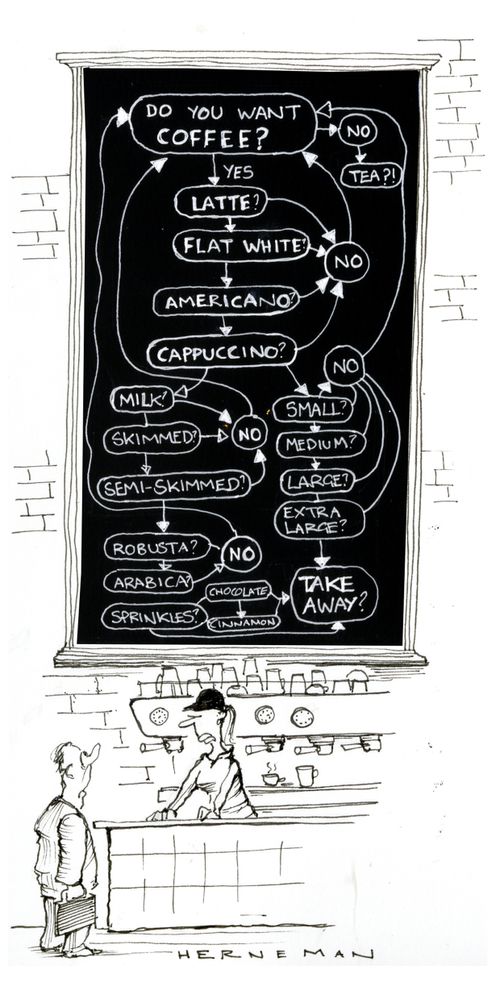 DO YOU WANT
COFFEE?
NO
TEA?!
YES
LATTE?
FLAT WHITE?
NO
AMERICANO?
CAPPUCCINO?
NO
MILK?
SMALL?
SKIMMED?
NO
MEDIUM?
SEMI-SKIMMED?
LARGE?
EXTRA
LARGE?
ROBUSTA?
NO
ARABICA?
CHOCOLATE
TAKE
AWAY?
SPRINKLES?
CINNAMON
HERNEMAN